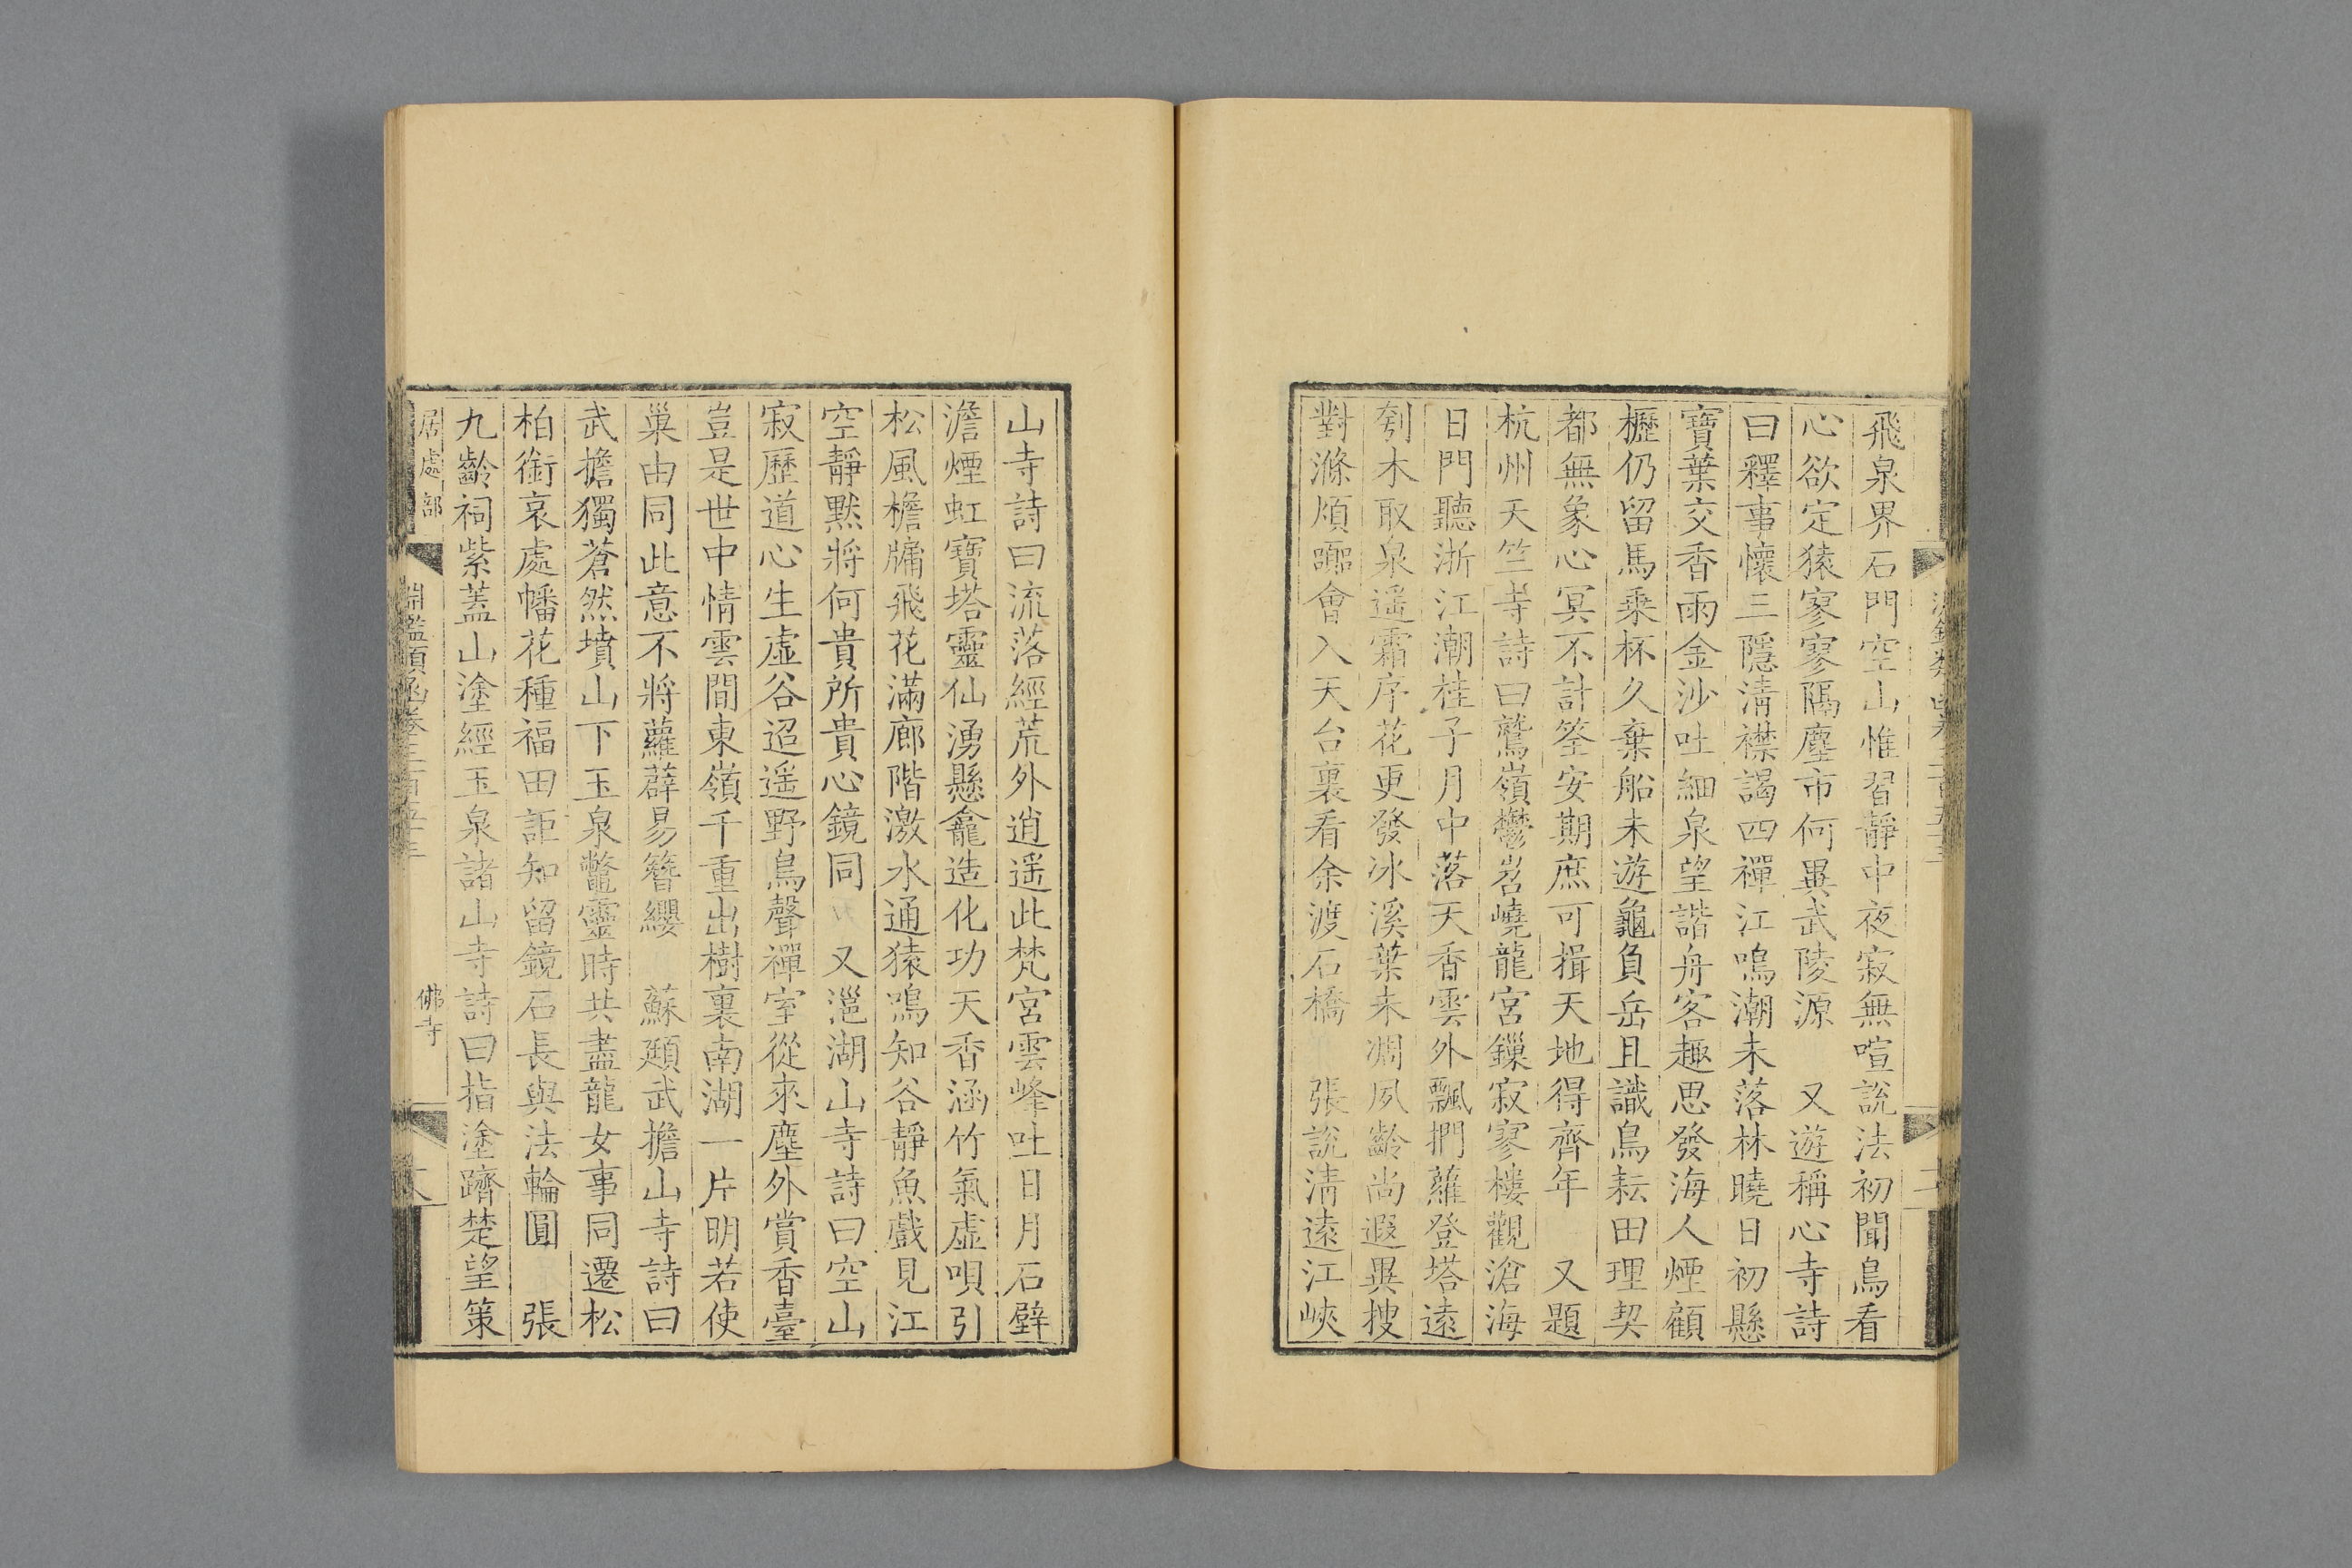 飛泉界石門空山惟習靜中夜寂無喧說法初聞鳥看
心欲定猿寥寥隔塵市何異武陵源　又遊稱心寺詩
曰釋事懷三隱清襟謁四禪江鳴潮未落林曉日初懸
寶葉交香雨金沙吐細泉望諧舟客趣思發海人煙顧
櫪仍留馬乘杯久棄船未遊龜負岳且識鳥耘田理契
都無象心冥不計筌安期庶可揖天地得齊年　又題
杭州天竺寺詩曰鷲嶺鬱岧嶢龍宮鏁寂寥樓觀滄海
日門聽浙江潮桂子月中落天香雲外飄捫蘿登塔遠
刳木取泉遥霜序花更發冰溪葉未凋夙齡尚遐異搜
對滌煩囂會入天台裏看余渡石橋　張說清遠江峽
山寺詩曰流落經荒外逍遥此梵宮雲峰吐日月石壁
澹煙虹寶塔靈仙湧懸龕造化功天香涵竹氣虛唄引
松風檐牖飛花滿廊階激水通猿鳴知谷靜魚戲見江
空靜默將何貴所貴心鏡同　又灉湖山寺詩曰空山
寂歷道心生虛谷迢遥野鳥聲禪室從來塵外賞香臺
豈是世中情雲間東嶺千重出樹裏南湖一片明若使
巢由同此意不將蘿薜易簪纓　蘇頲武擔山寺詩曰
武擔獨蒼然墳山下玉泉鼈靈時共盡龍女事同遷松
柏銜哀處幡花種福田詎知留鏡石長與法輪圓　張
九齡祠紫蓋山塗經玉泉諸山寺詩曰指塗躋楚望策
居處部
淵鑑類函卷三百五十三
佛寺